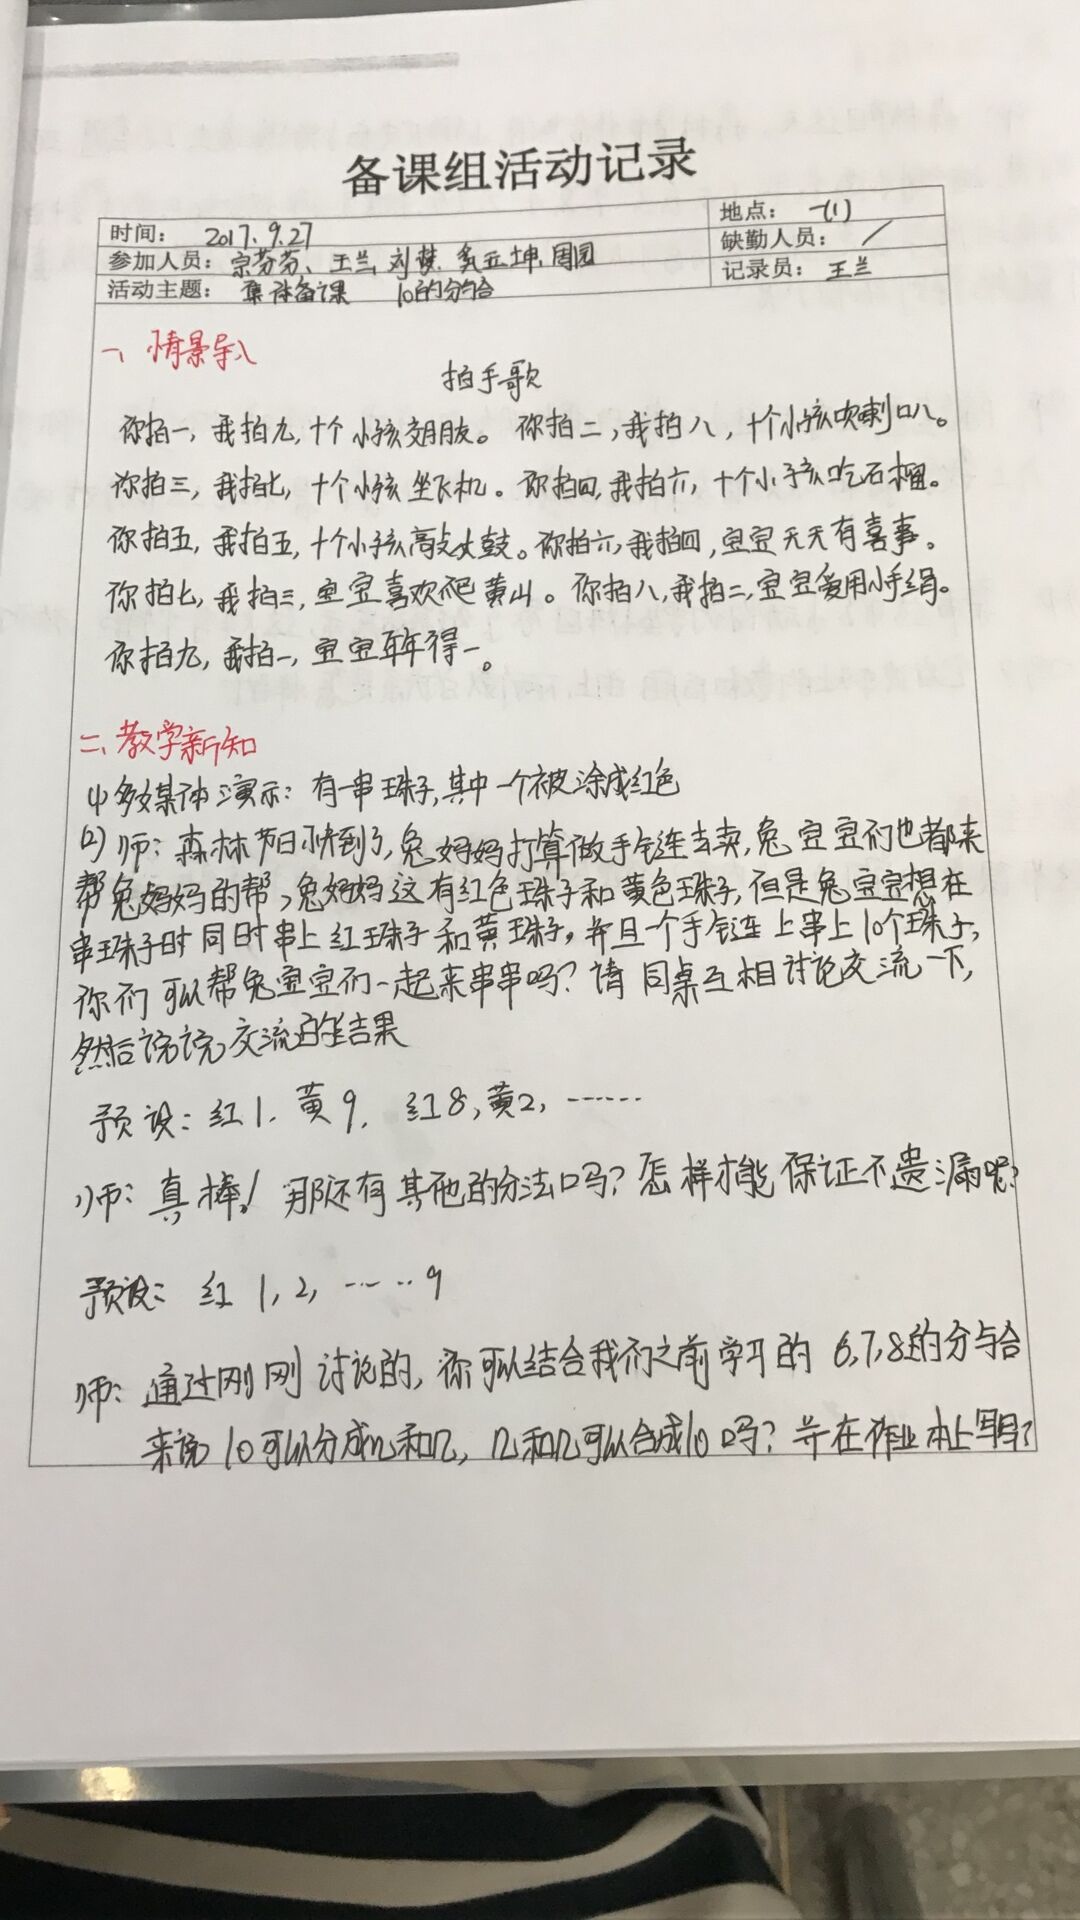 备课组活动记录
时间: 2017.9.27 地点: 一(1)
参加人员: 宗芬芬、王兰、刘梦、 亚坤、周园 缺勤人员: /
活动主题: 集体备课 10的分与合 记录员: 王兰
一、情景导入
拍手歌
你拍一,我拍九,十个小孩交朋友。你拍二,我拍八,十个小孩吹喇叭。
你拍三,我拍七,十个小孩坐飞机。你拍四,我拍六,十个小孩吃石榴。
你拍五,我拍五,十个小孩敲大鼓。你拍六,我拍四,宝宝天天有喜事。
你拍七,我拍三,宝宝喜欢爬黄山。你拍八,我拍二,宝宝爱用小手绢。
你拍九,我拍一,宝宝年年得一。
二、教学新知
(1) 多媒体演示: 有一串珠子,其中一个被涂成红色
(2) 师: 森林节日快到了,兔妈妈打算做手链去卖,兔宝宝们也都来
帮兔妈妈的帮,兔妈妈这有红色珠子和黄色珠子,但是兔宝宝想在
串珠子时同时串上红珠子和黄珠子,并且一个手链上串上10个珠子,
你们可以帮兔宝宝们一起来串串吗?请同桌互相讨论交流一下,
然后说说交流的结果
预设: 红1.黄9. 红8,黄2,……
师: 真棒!那还有其他的分法吗?怎样才能保证不遗漏呢?
预设: 红1,2,……9
师: 通过刚刚讨论的,你可以结合我们之前学习的6,7,8的分与合
来说10可以分成几和几,几和几可以合成10吗?并在作业本上写写?